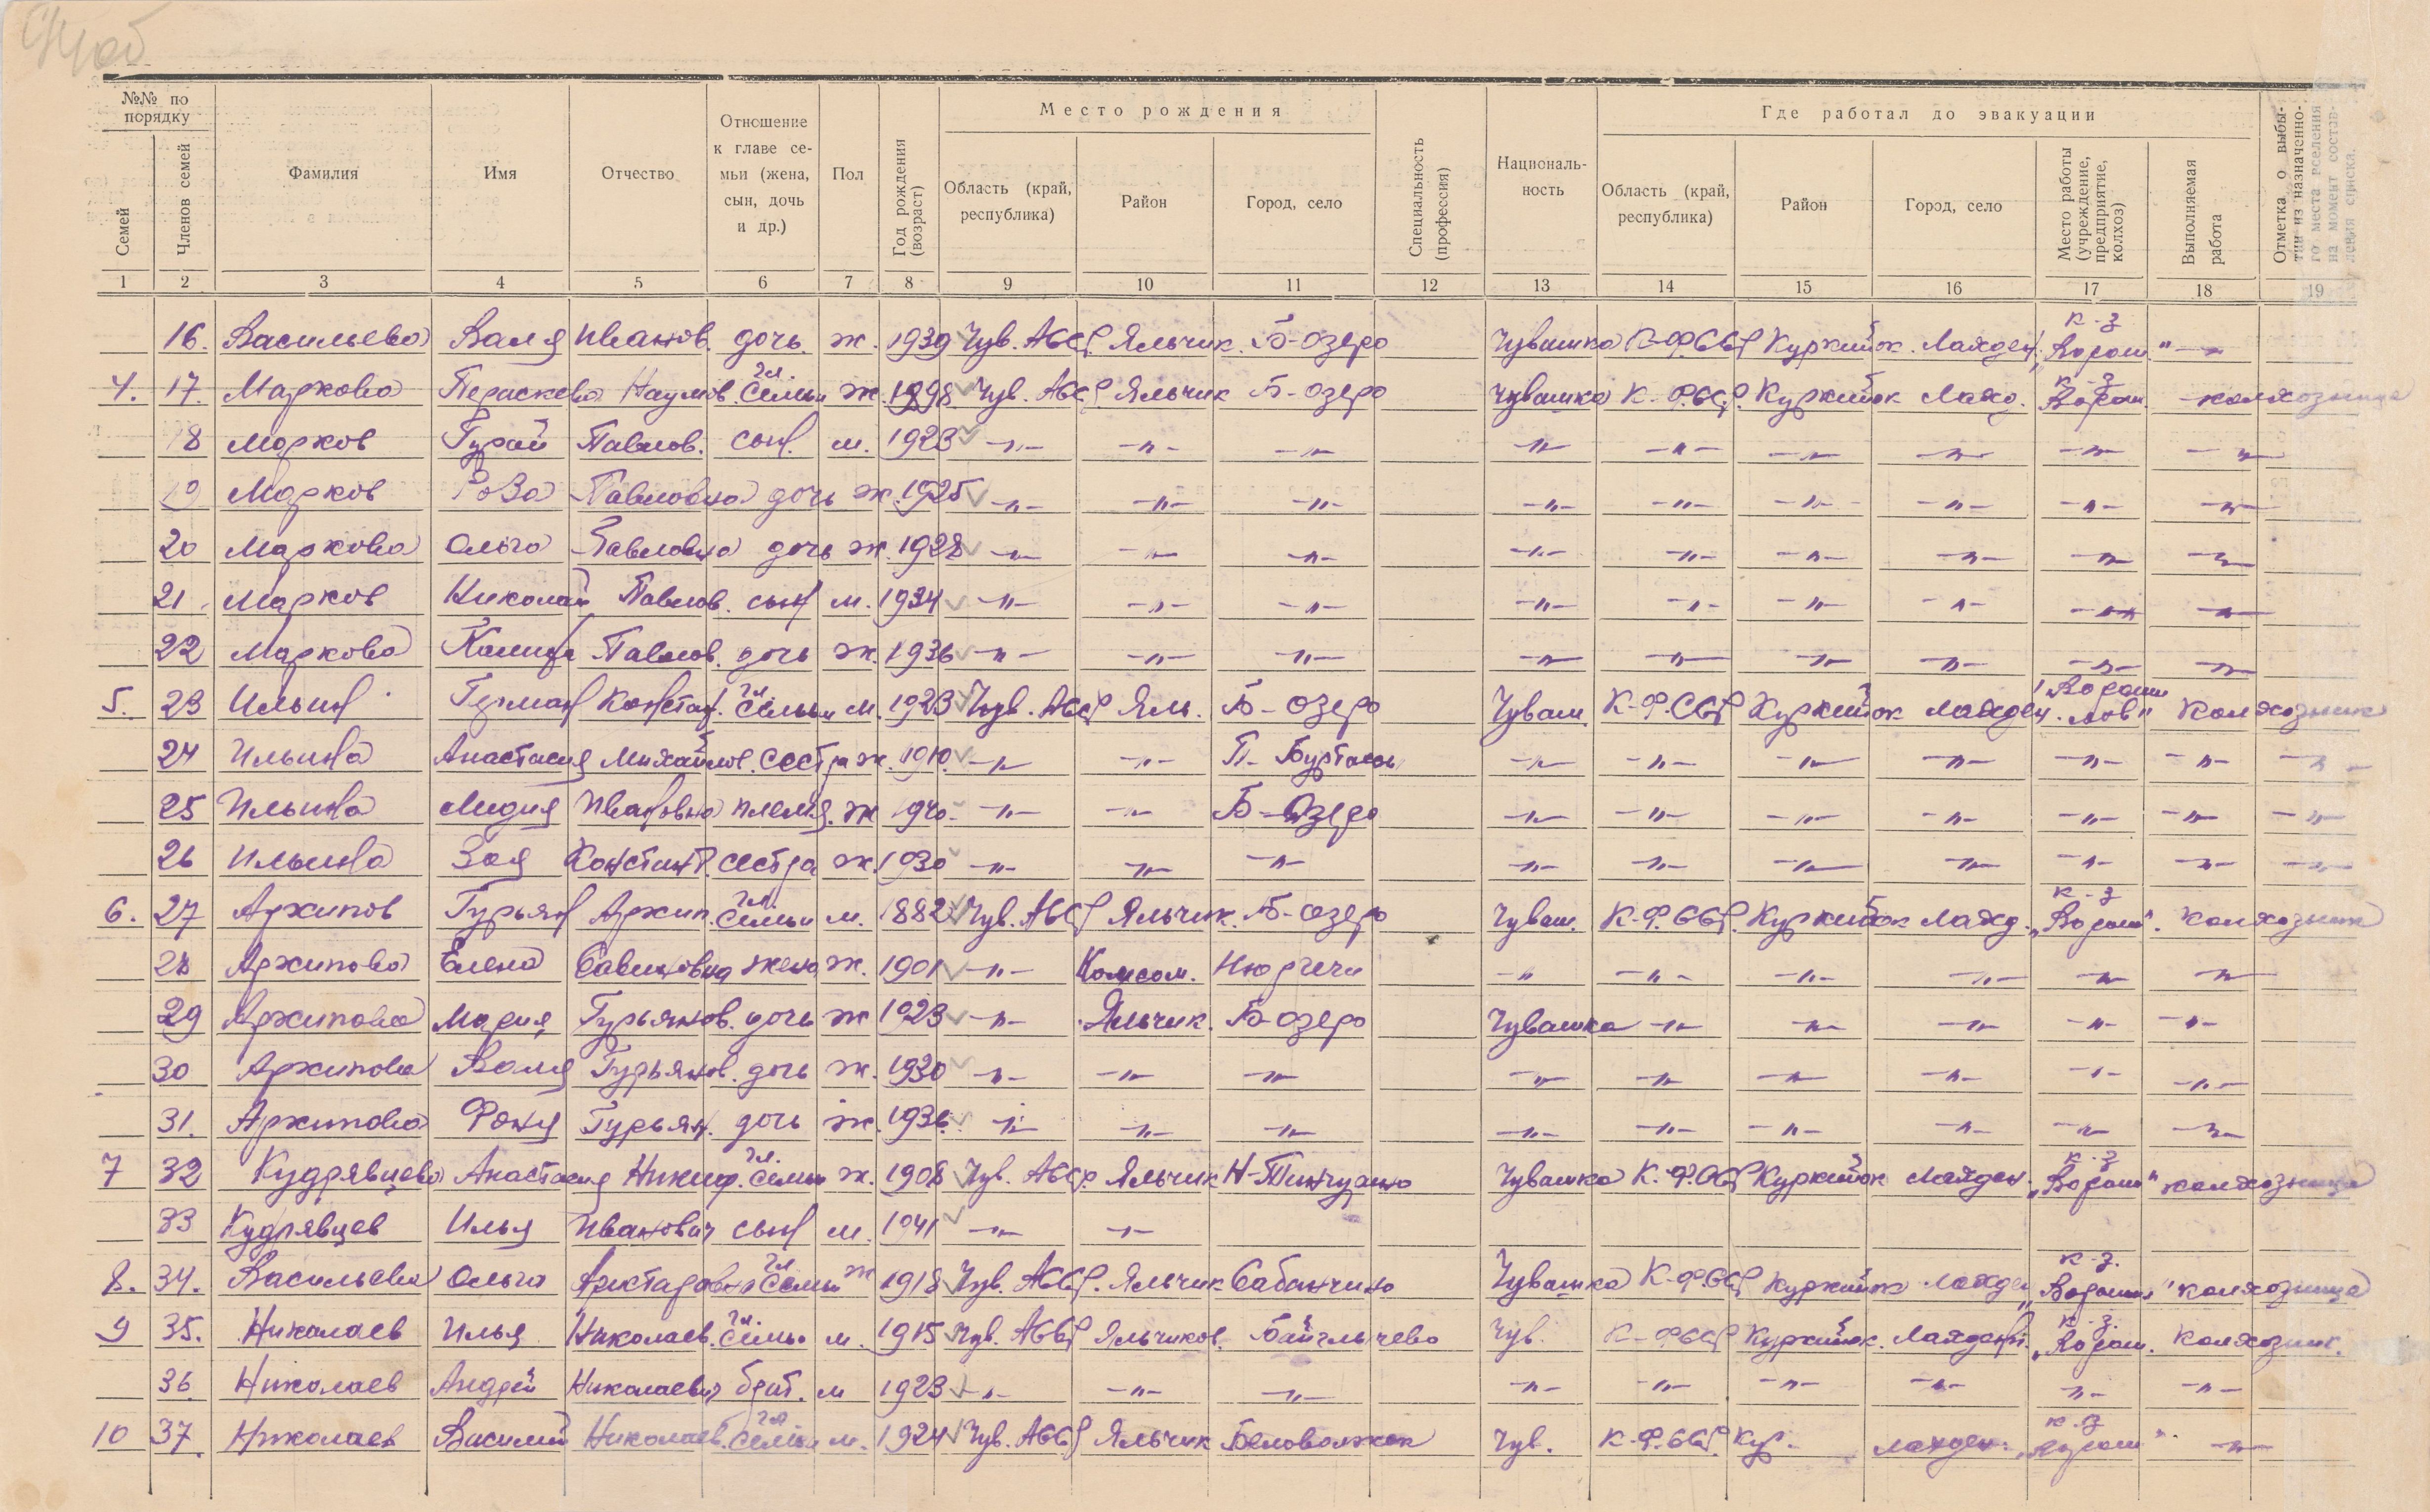 №№ по порядку
Семей
Членов семей
Фамилия
Имя
Отчество
Отношение к главе се- мьи (жена, сын, дочь и др.)
Пол
Год рождения (возраст)
Место рождения
Область (край, республика)
Район
Город, село
Специальность (профессия)
Националь- ность
Где работал до эвакуации
Область (край, республика)
Район
Город, село
Место работы (учреждение, предприятие, колхоз)
Выполняемая работа
Отметка о выбы- тии из назначенно- го места вселения на момент состав- ления списка.
1 2 3 4 5 6 7 8 9 10 11 12 13 14 15 16 17 18 19
16. Васильева Валя Иванов. дочь. ж. 1939 Чув. АССР. Яльчик. Б-озеро Чувашка К-Ф.ССР Куркийок. Лахден. к-з „Ворош." -"-
4. 17. Маркова Параскева Наумов. гл. семьи ж. 1898 Чув. АССР. Яльчик Б-озеро Чувашка К-Ф.ССР. Куркийок Лахд. к-з Ворош. колхозница
18 Марков Гурий Павлов. сын. м. 1923 -"- -"- -"- -"- -"- -"- -"- -"- -"-
19 Марков Роза Павловна дочь ж. 1925 -"- -"- -"- -"- -"- -"- -"- -"- -"-
20 Маркова Ольга Павловна дочь ж. 1928 -"- -"- -"- -"- -"- -"- -"- -"- -"-
21 Марков Николай Павлов. сын м. 1934 -"- -"- -"- -"- -"- -"- -"- -"- -"-
22 Маркова Павлов. дочь ж. 1936 -"- -"- -"- -"- -"- -"- -"- -"- -"-
5. 23 Ильин Герман Констан. гл. семьи м. 1923 Чув. АССР Яль. Б-озеро Чуваш. К-Ф.ССР Куркийок Лахден. „Вороши лов" колхозник
24 Ильина Анастасия Михайлов. сестра ж. 1910. -"- -"- П-Буртасы -"- -"- -"- -"- -"- -"- -"-
25 Ильина Лидия Ивановна племя. ж 1940. -"- -"- Б-Озеро -"- -"- -"- -"- -"- -"- -"-
26 Ильина Зоя Констант. сестра ж. 1930 -"- -"- -"- -"- -"- -"- -"- -"- -"- -"-
6. 27 Архипов Гурьян Архип. гл. семьи м. 1882 Чув. АССР Яльчик. Б-озеро Чуваш. К-Ф.ССР. Куркийок Лахд. к-з „Ворош". колхозник
28 Архипова Елена Савиновна жена ж. 1901 -"- Комсом. Нюргечи -"- -"- -"- -"- -"- -"-
29 Архипова Мария Гурьянов. дочь ж 1923 -"- Яльчик. Б-озеро Чувашка -"- -"- -"- -"- -"-
30 Архипова Валя Гурьянов. дочь ж. 1930 -"- -"- -"- -"- -"- -"- -"- -"- -"-
31. Архипова Фаня Гурьян. дочь ж. 1936. -"- -"- -"- -"- -"- -"- -"- -"- -"-
7 32 Кудрявцева Анастасия Никиф. гл. семьи ж. 1908 Чув. АССР. Яльчик Н-Тинчурино Чувашка К.Ф.ССР Куркийок Лахден. к-з „Ворош" колхозница
33 Кудрявцев Илья Иванович сын м. 1941 -"- -"-
8. 34. Васильева Ольга гл. семьи ж 1918 Чув. АССР. Яльчик Сабанчино Чувашка К-Ф.ССР Куркийок Лахден к-з. „Ворош" колхозница
9 35. Николаев Илья Николаев. гл. семьи м. 1915 Чув. АССР Яльчиков. Байглычево Чув. К-Ф.ССР Куркийок. Лахден. к-з. „Ворош. колхозник.
36 Николаев Андрей Николаевич брат. м 1923 -"- -"- -"- -"- -"- -"- -"- -"- -"-
10 37. Николаев Василий Николаев. гл. семьи м. 1924 Чув. АССР Яльчик Беловолжск Чув. К-Ф.ССР. Кур. Лахден. к-з „Ворош" -"-